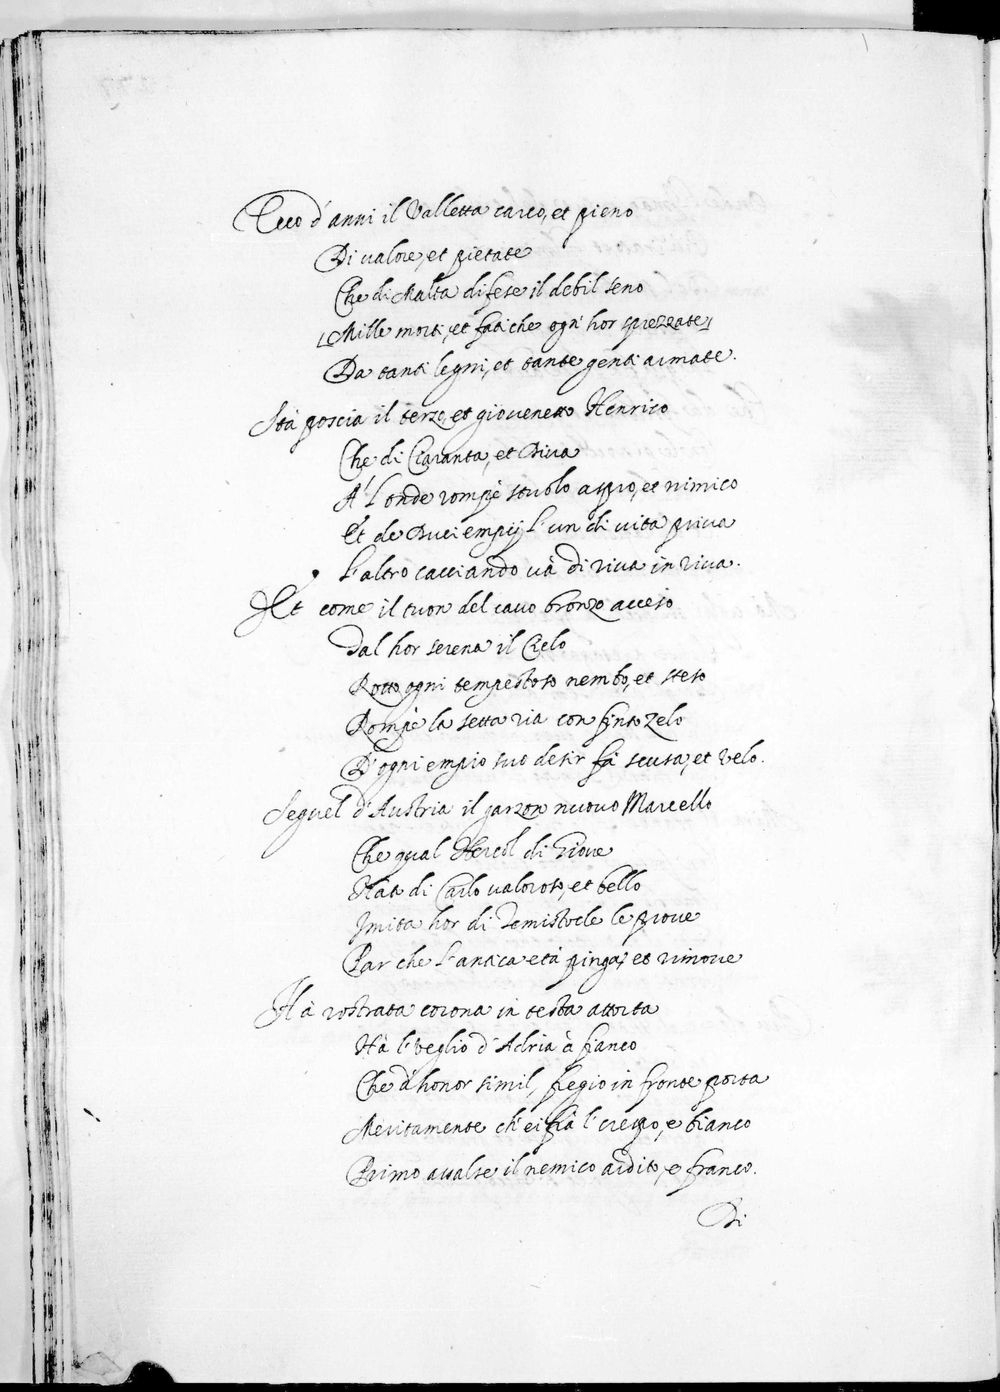 Ecco d'anni il Valletta carco, et pieno
Di valore, et pietate
Che di Malta difese il debil seno
Mille morti, et fatiche ogn' hor sprezzate
Da tanti legni, et tante genti armate.
Stà poscia il terzo, et giovenetto Henrico
Che di Charanta, et Diva
A l'onde rompe stuolo aspro, et nimico
Et de Duci empij l'un di vita priva
L'altro cacciando và di riva in riva.
Et come il tuon del cavo bronzo acceso
Dal hor serena il Cielo
Rotto ogni tempestoso nembo, et steso
Rompe la setta ria con finto zelo
D'ogni empio suo desir fà scusa, et velo.
Seguel d'Austria il garzon nuovo Marcello
Che qual Hercol di Giove
Nat di Carlo valoroso, et bello
Imita hor di Temistocle le prove
Par che l'antica età pinga, et rinove
Hà rostrata corona in testa attorta
Hà l'veglio d'Adria à fianco
Che d'honor simil, fregio in fronte porta
Meritamente ch'ei fià l'crespo, e bianco
Primo assalse il nemico ardito, e franco.
Di